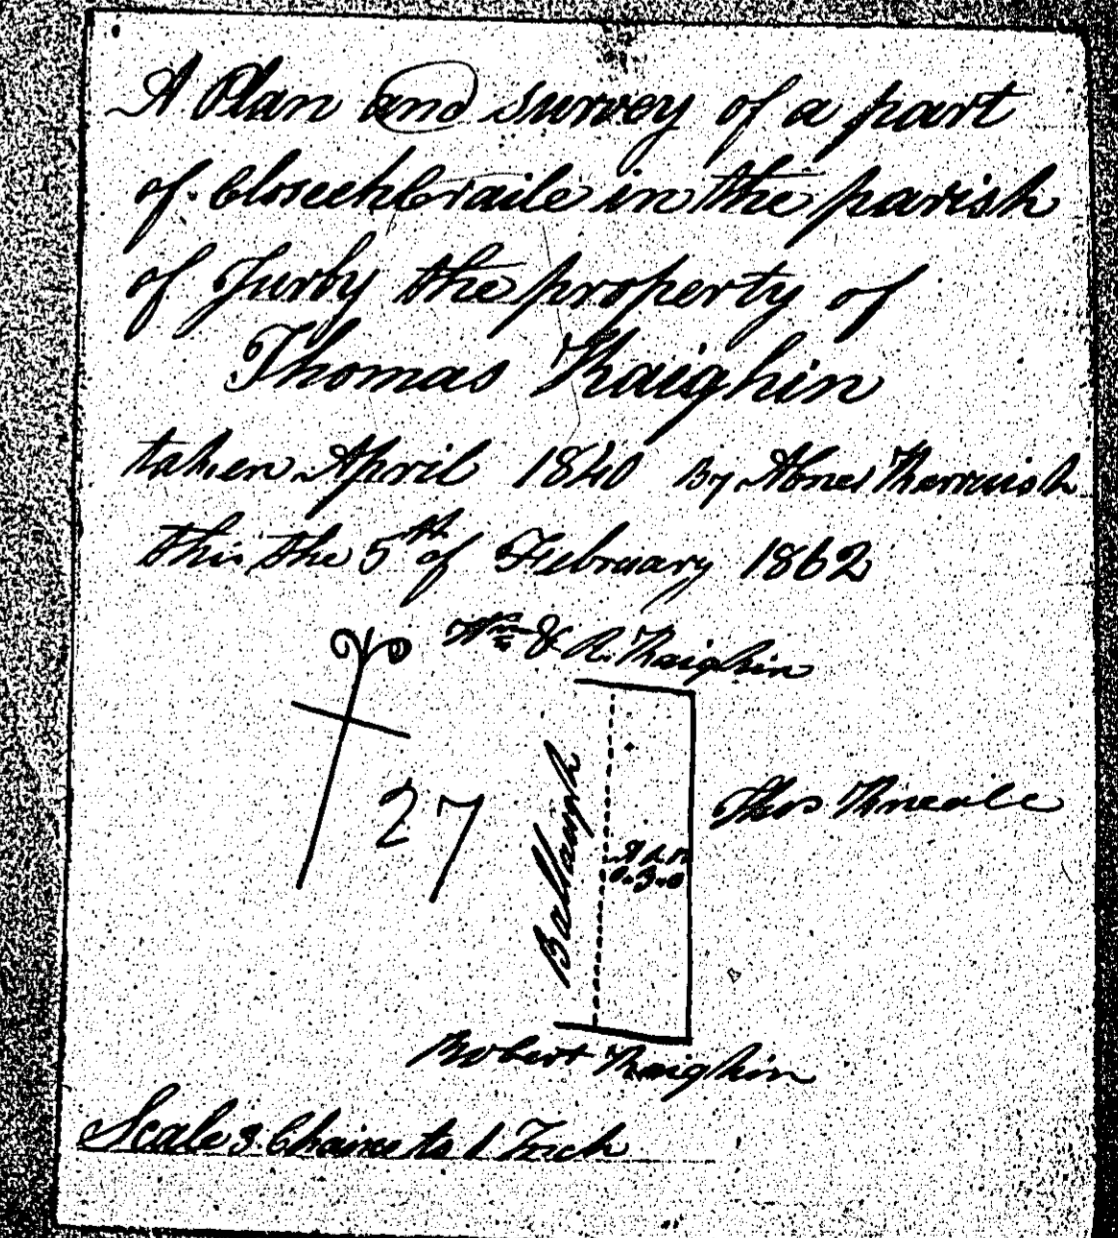 A Plan and survey of a part
of CloseehCraile in the parish
of Jurby the property of
Thomas Kaighin
taken April 1840 By Abner Kerruish
this the 5th of February 1862
Wm & R. Kaighin
27
Ballaugh
Thos Kneale
A R P
0.3.0
Robert Kaighin
Scale 3 Chains to 1 Inch